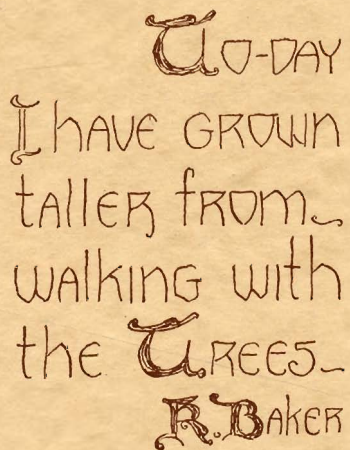 To-day
I have grown
taller from
walking with
the Trees
R. Baker